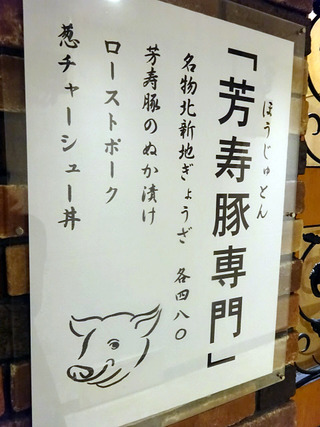 「芳寿豚専門」
ほうじゅとん
名物北新地ぎょうざ 各四八〇
芳寿豚のぬか漬け
ローストポーク
葱チャーシュー丼